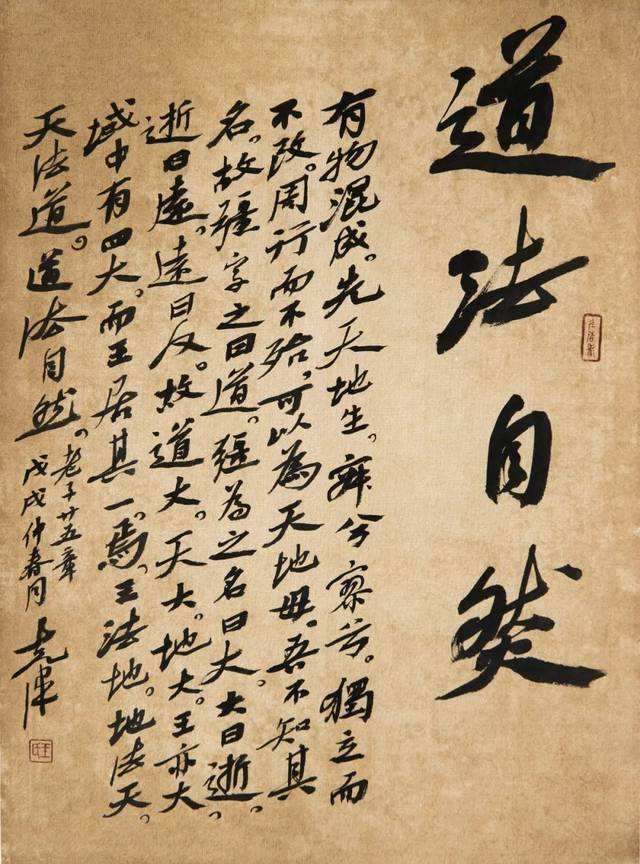 道法自然
有物混成。先天地生。寂兮寥兮。獨立而
不改。周行而不殆。可以為天地母。吾不知其
名。故彊字之曰道。彊為之名曰大。大曰逝。
逝曰遠。遠曰反。故道大。天大。地大。王亦大。
域中有四大。而王居其一焉。王法地。地法天。
天法道。道法自然。
老子廿五章
戊戌仲春月